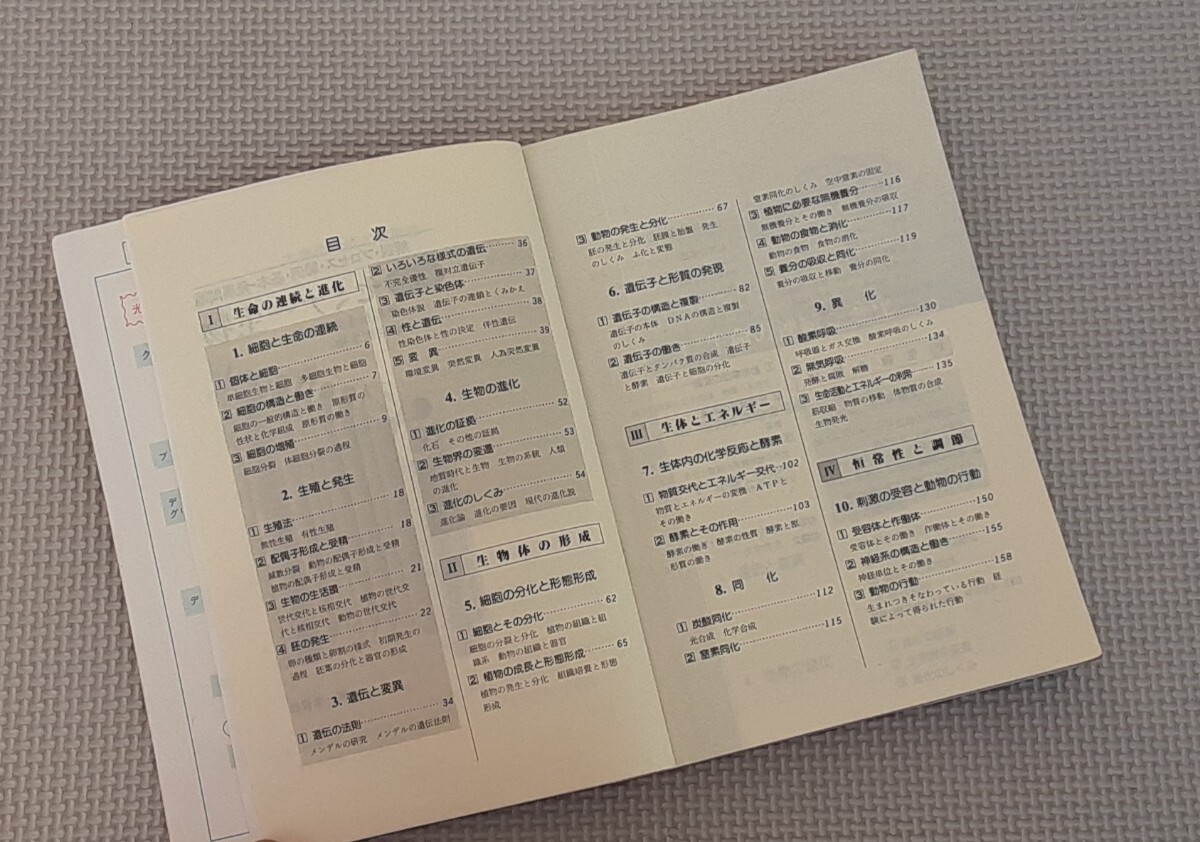 目次
I 生命の連続と進化
1. 細胞と生命の連続
1 個体と細胞 6
単細胞生物と細胞 多細胞生物と細胞
2 細胞の構造と働き 7
細胞の一般的構造と働き 原形質の
性状と化学組成 原形質の働き
3 細胞の増殖 9
細胞分裂 体細胞分裂の過程
2. 生殖と発生
1 生殖法 18
無性生殖 有性生殖
2 配偶子形成と受精 18
減数分裂 動物の配偶子形成と受精
植物の配偶子形成と受精
3 生物の生活環 21
世代交代と核相交代 植物の世代交
代と核相交代 動物の世代交代
4 胚の発生 22
卵の種類と卵割の様式 初期発生の
過程 胚葉の分化と器官の形成
3. 遺伝と変異
1 遺伝の法則 34
メンデルの研究 メンデルの遺伝法則
2 いろいろな様式の遺伝 36
不完全優性 複対立遺伝子
3 遺伝子と染色体 37
染色体説 遺伝子の連鎖とくみかえ
4 性と遺伝 38
性染色体と性の決定 伴性遺伝
5 変異 39
環境変異 突然変異 人為突然変異
4. 生物の進化
1 進化の証拠 52
化石 その他の証拠
2 生物界の変遷 53
地質時代と生物 生物の系統 人類
の進化
3 進化のしくみ 54
進化論 進化の要因 現代の進化説
II 生物体の形成
5. 細胞の分化と形態形成
1 細胞とその分化 62
細胞の分裂と分化 植物の組織と組
織系 動物の組織と器官
2 植物の成長と形態形成 65
植物の発生と分化 組織培養と形態
形成
3 動物の発生と分化 67
胚の発生と分化 胚膜と胎盤 発生
のしくみ ふ化と変態
6. 遺伝子と形質の発現
1 遺伝子の構造と複製 82
遺伝子の本体 DNAの構造と複製
のしくみ
2 遺伝子の働き 85
遺伝子とタンパク質の合成 遺伝子
と酵素 遺伝子と細胞の分化
III 生体とエネルギー
7. 生体内の化学反応と酵素
1 物質交代とエネルギー交代 102
物質とエネルギーの変換 ATPと
その働き
2 酵素とその作用 103
酵素の働き 酵素の性質 酵素と原
形質の働き
8. 同化
1 炭酸同化 112
光合成 化学合成
2 窒素同化 115
窒素同化のしくみ 空中窒素の固定
3 植物に必要な無機養分 116
無機養分とその働き 無機養分の吸収
4 動物の食物と消化 117
動物の食物 食物の消化
5 養分の吸収と同化 119
養分の吸収と移動 養分の同化
9. 異化
1 酸素呼吸 130
呼吸器とガス交換 酸素呼吸のしくみ
2 無気呼吸 134
発酵と腐敗 解糖
3 生命活動とエネルギーの利用 135
筋収縮 物質の移動 体物質の合成
生物発光
IV 恒常性と調節
10. 刺激の受容と動物の行動
1 受容体と作動体 150
受容体とその働き 作動体とその働き
2 神経系の構造と働き 155
神経単位とその働き
3 動物の行動 158
生まれつきそなわっている行動 経
験によって得られた行動